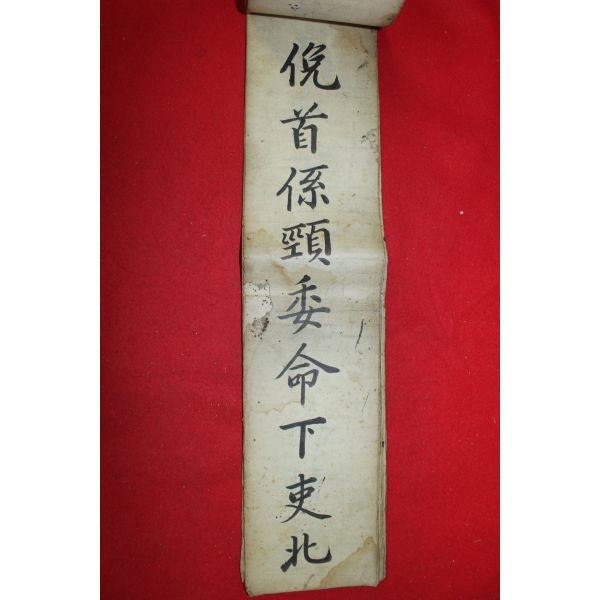 俛首係頸委命下吏北